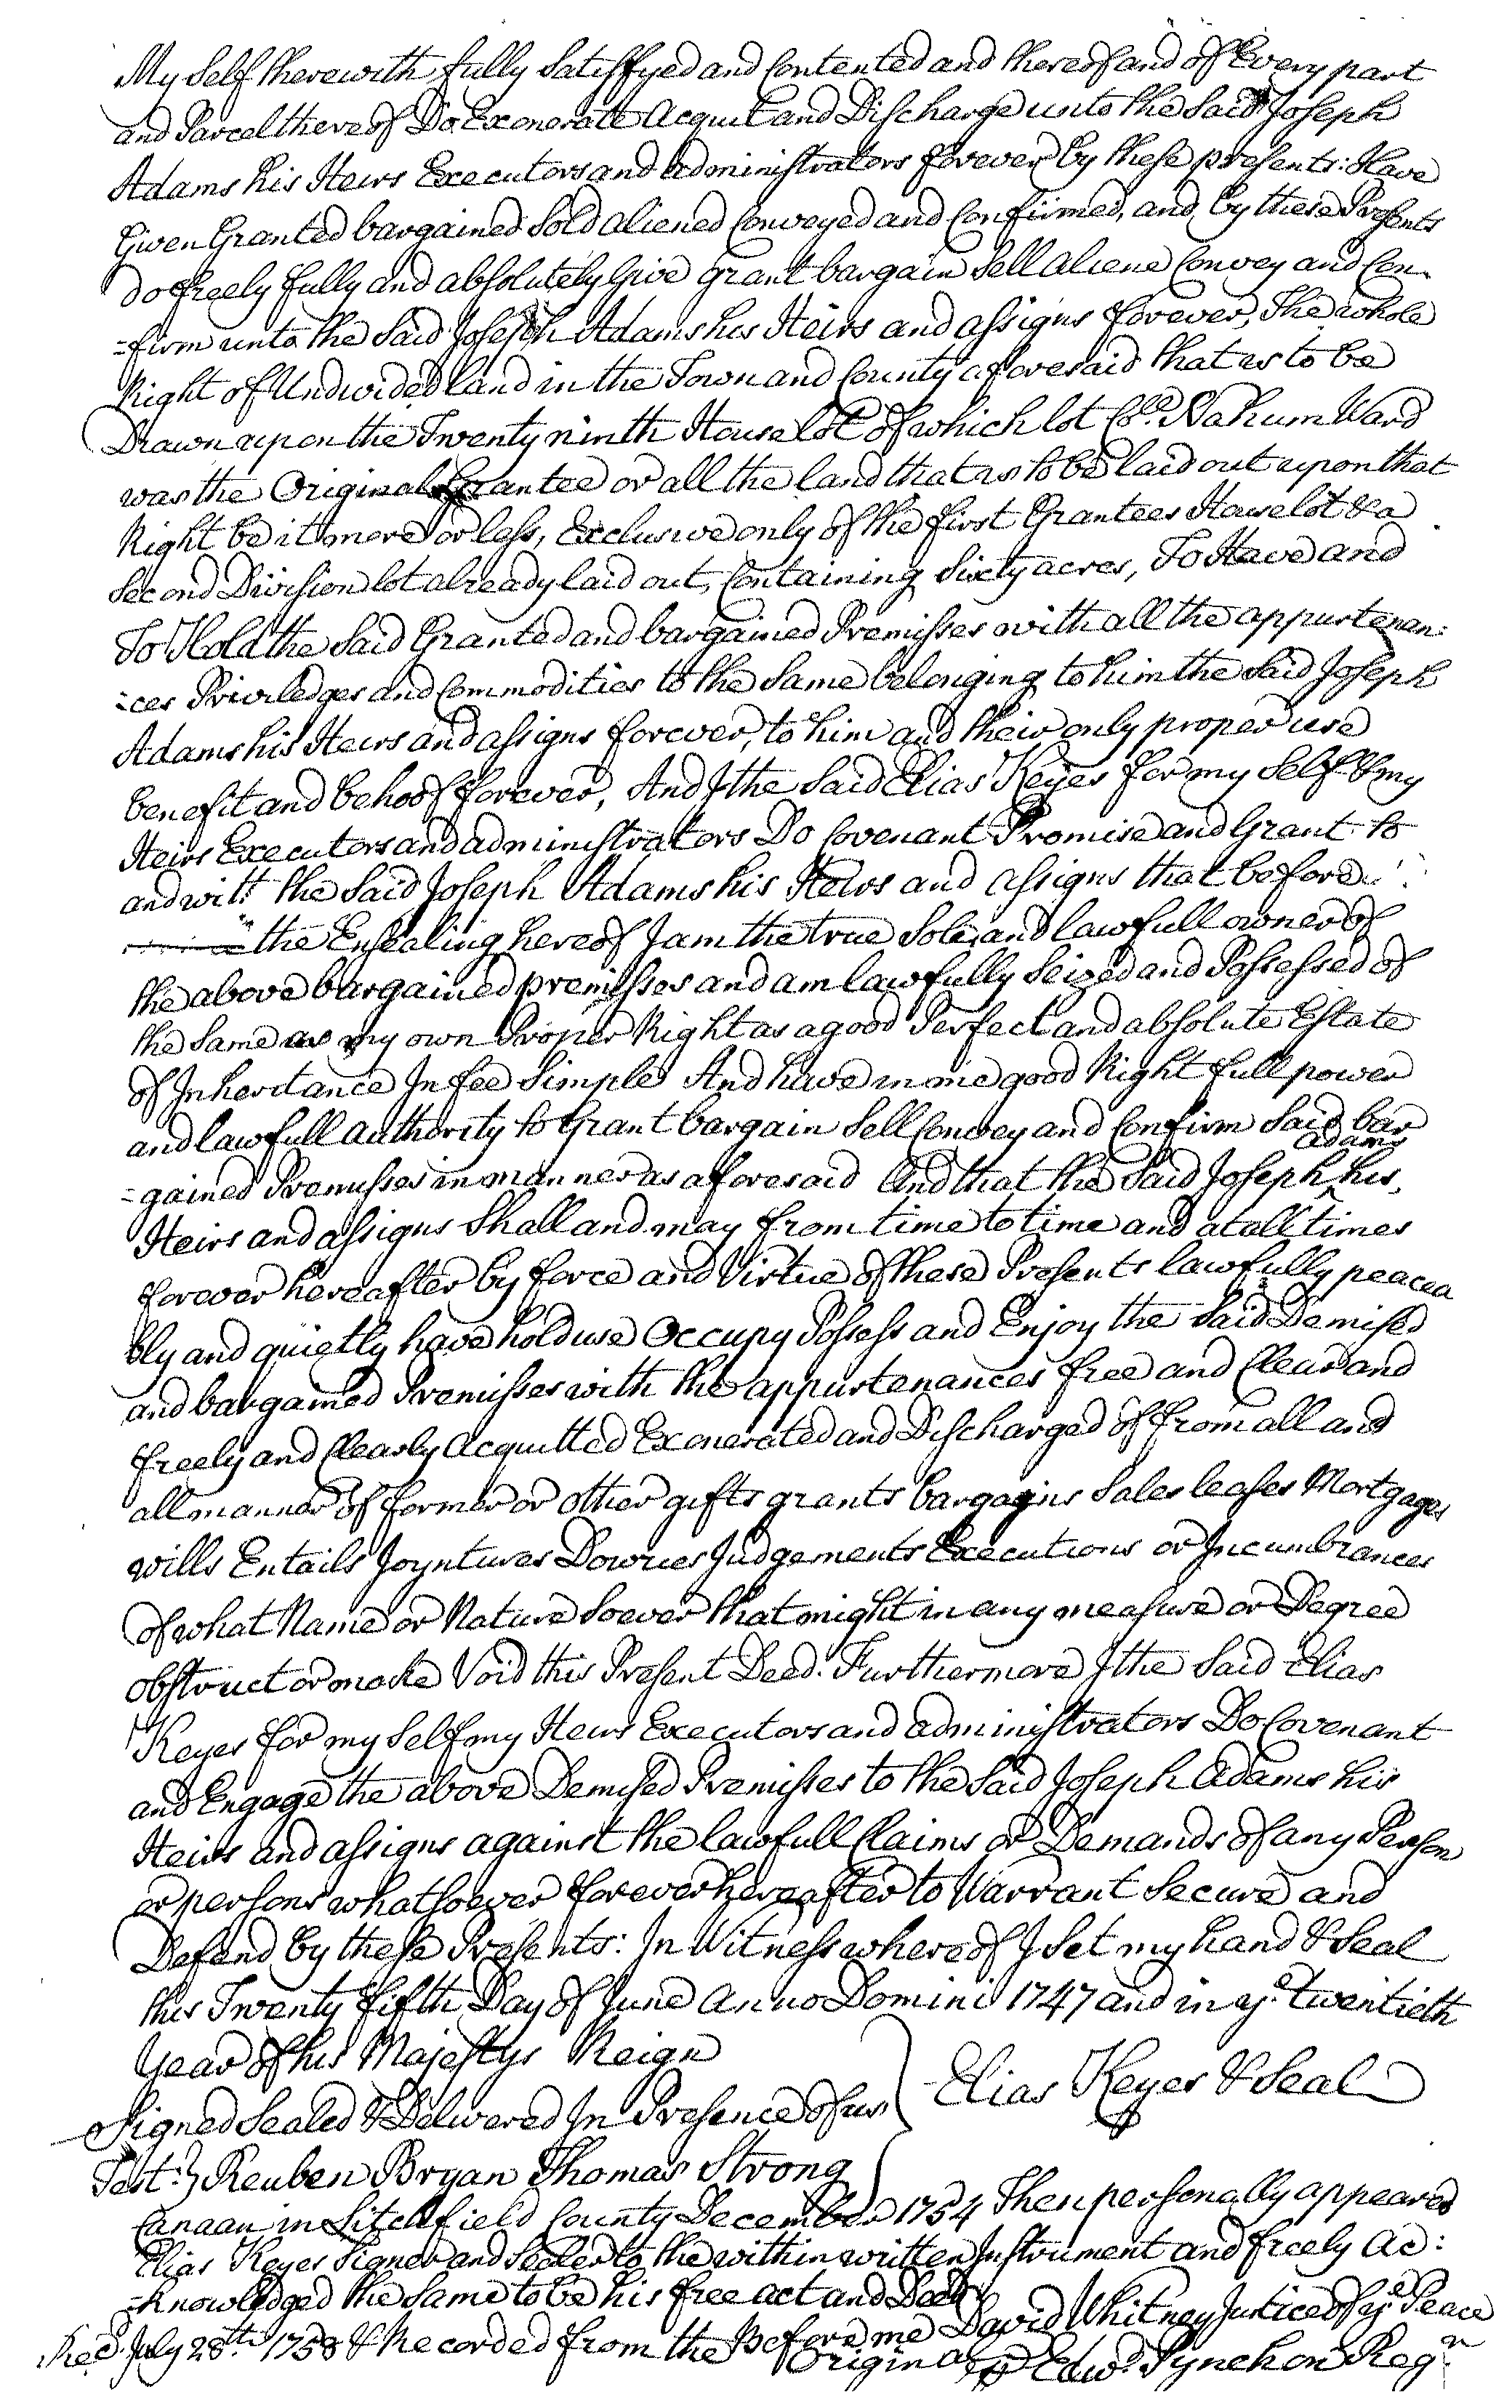 My Self therewith fully Satisfyed and Contented and thereof and of Every part
and Parcel thereof Do Exonerate Acquit and Discharge unto the Said Joseph
Adams his Heirs Executors and administrators forever by these presents: Have
Given Granted bargained Sold aliened Conveyed and Confirmed, and by these Presents
do freely fully and absolutely Give grant bargain Sell aliene Convey and Con-
=firm unto the Said Joseph Adams his Heirs and assigns forever, The whole
Right of Undivided land in the Town and County aforesaid that is to be
Drawn upon the Twenty ninth House lot of which lot Colo. Nahum Ward
was the Original Grantee or all the land that is to be laid out upon that
Right be it more or less, Exclusive only of the first Grantees House lot & a
Second Division lot already laid out, Containing Sixty acres, To Have and
To Hold the Said Granted and bargained Premisses with all the appurtenan:
=ces Priviledges and Commodities to the Same belonging to him the Said Joseph
Adams his Heirs and assigns forever, to him and their only proper use
benefit and behoof forever, And I the Said Elias Keyes for my Self & my
Heirs Executors and administrators Do Covenant Promise and Grant to
and with the Said Joseph Adams his Heirs and assigns that before
the Ensealing hereof I am the true Sole and lawfull owner of
the above bargained premisses and am lawfully Seized and Possessed of
the Same as my own Proper Right as a good Perfect and absolute Estate
of Inheritance In fee Simple And have in me good Right full power
and lawfull authority to Grant bargain Sell Convey and Confirm Said bar
=gained Premisses in manner as aforesaid And that the Said Joseph Adams his
Heirs and assigns Shall and may from time to time and at all times
forever hereafter by force and Virtue of these Presents lawfully peacea
bly and quietly have hold use Occupy Possess and Enjoy the Said Demised
and bargained Premisses with the appurtenances free and Clear and
freely and Clearly Acquitted Exonerated and Discharged of from all and
all manner of former or other gifts grants bargains Sales leases Mortgages
wills Entails Joyntures Dowries Judgements Executions or Incumbrances
of what Name or Nature Soever that might in any measure or Degree
obstruct or make Void this Present Deed. Furthermore I the Said Elias
Keyes for my Self my Heirs Executors and administrators Do Covenant
and Engage the above Demised Premisses to the Said Joseph Adams his
Heirs and assigns against the lawfull Claims or Demands of any Person
or persons whatsoever forever hereafter to Warrant Secure and
Defend by these Presents: In Witness whereof I Set my hand & Seal
this Twenty fifth Day of June Anno Domini 1747 and in ye. twentieth
Year of his Majestys Reign
Signed Sealed & Delivered In Presence of us. Elias Keyes & Seal
Test:} Reuben Bryan Thomas Strong
Canaan in Litchfield County December 1754 Then personally appeared
Elias Keyes Signer and Sealer to the within written Instrument and freely Ac:
=knowledged the Same to be his free act and Deed
Before me David Whitney Justice of ye. Peace
Recd. July 28th. 1758 & Recorded from the Original ⅌ Edwd. Pynchon Regr.